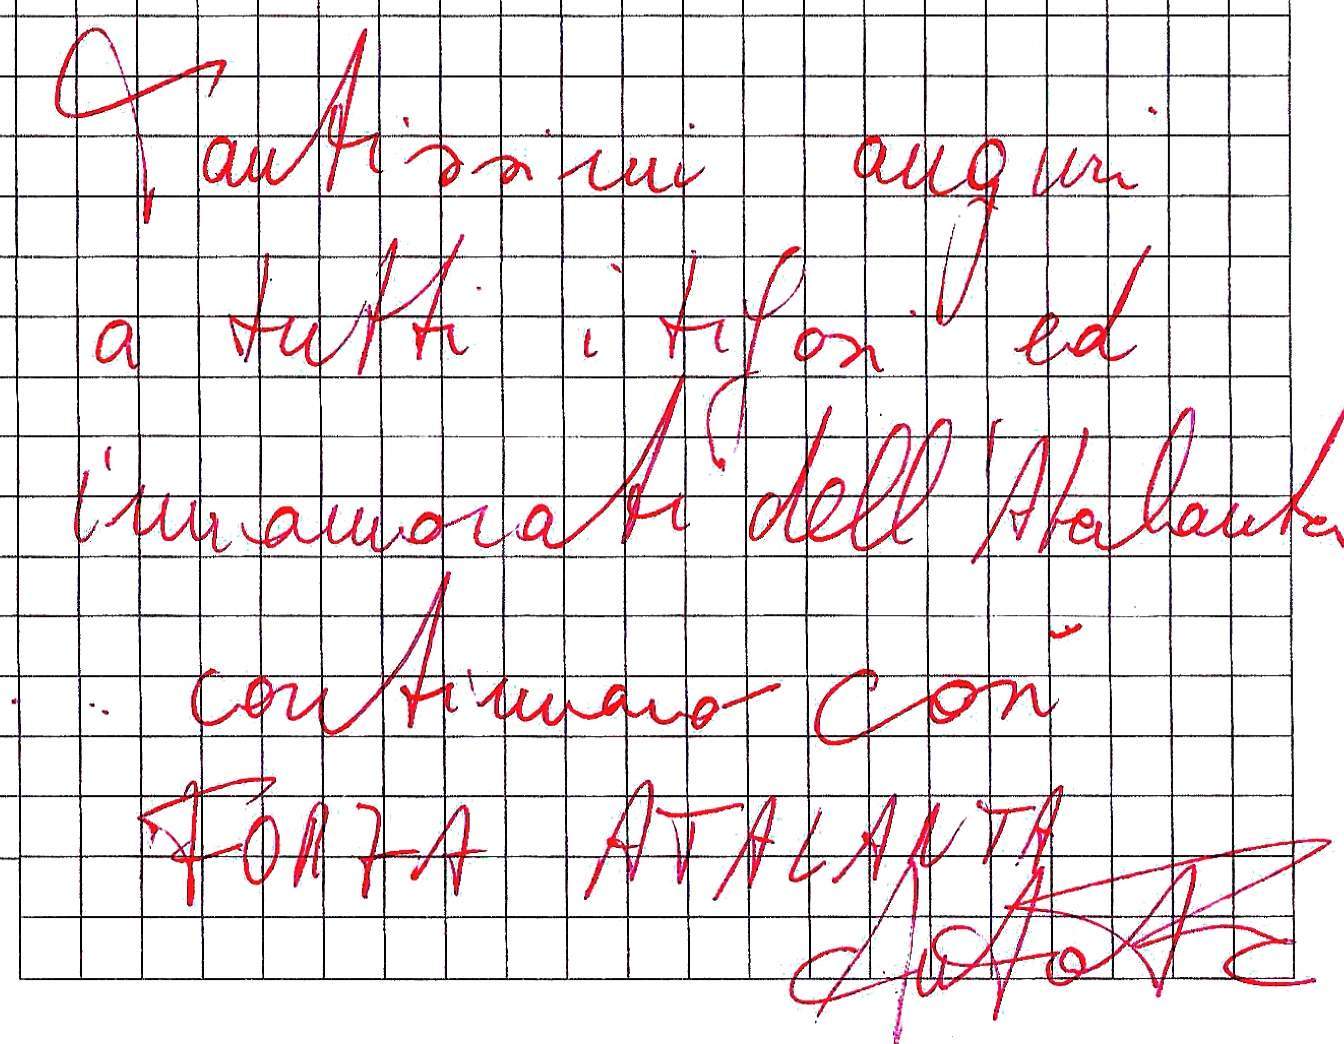 Tantissimi auguri
a tutti i tifosi ed
innamorati dell'Atalanta
continuano così
FORZA ATALANTA